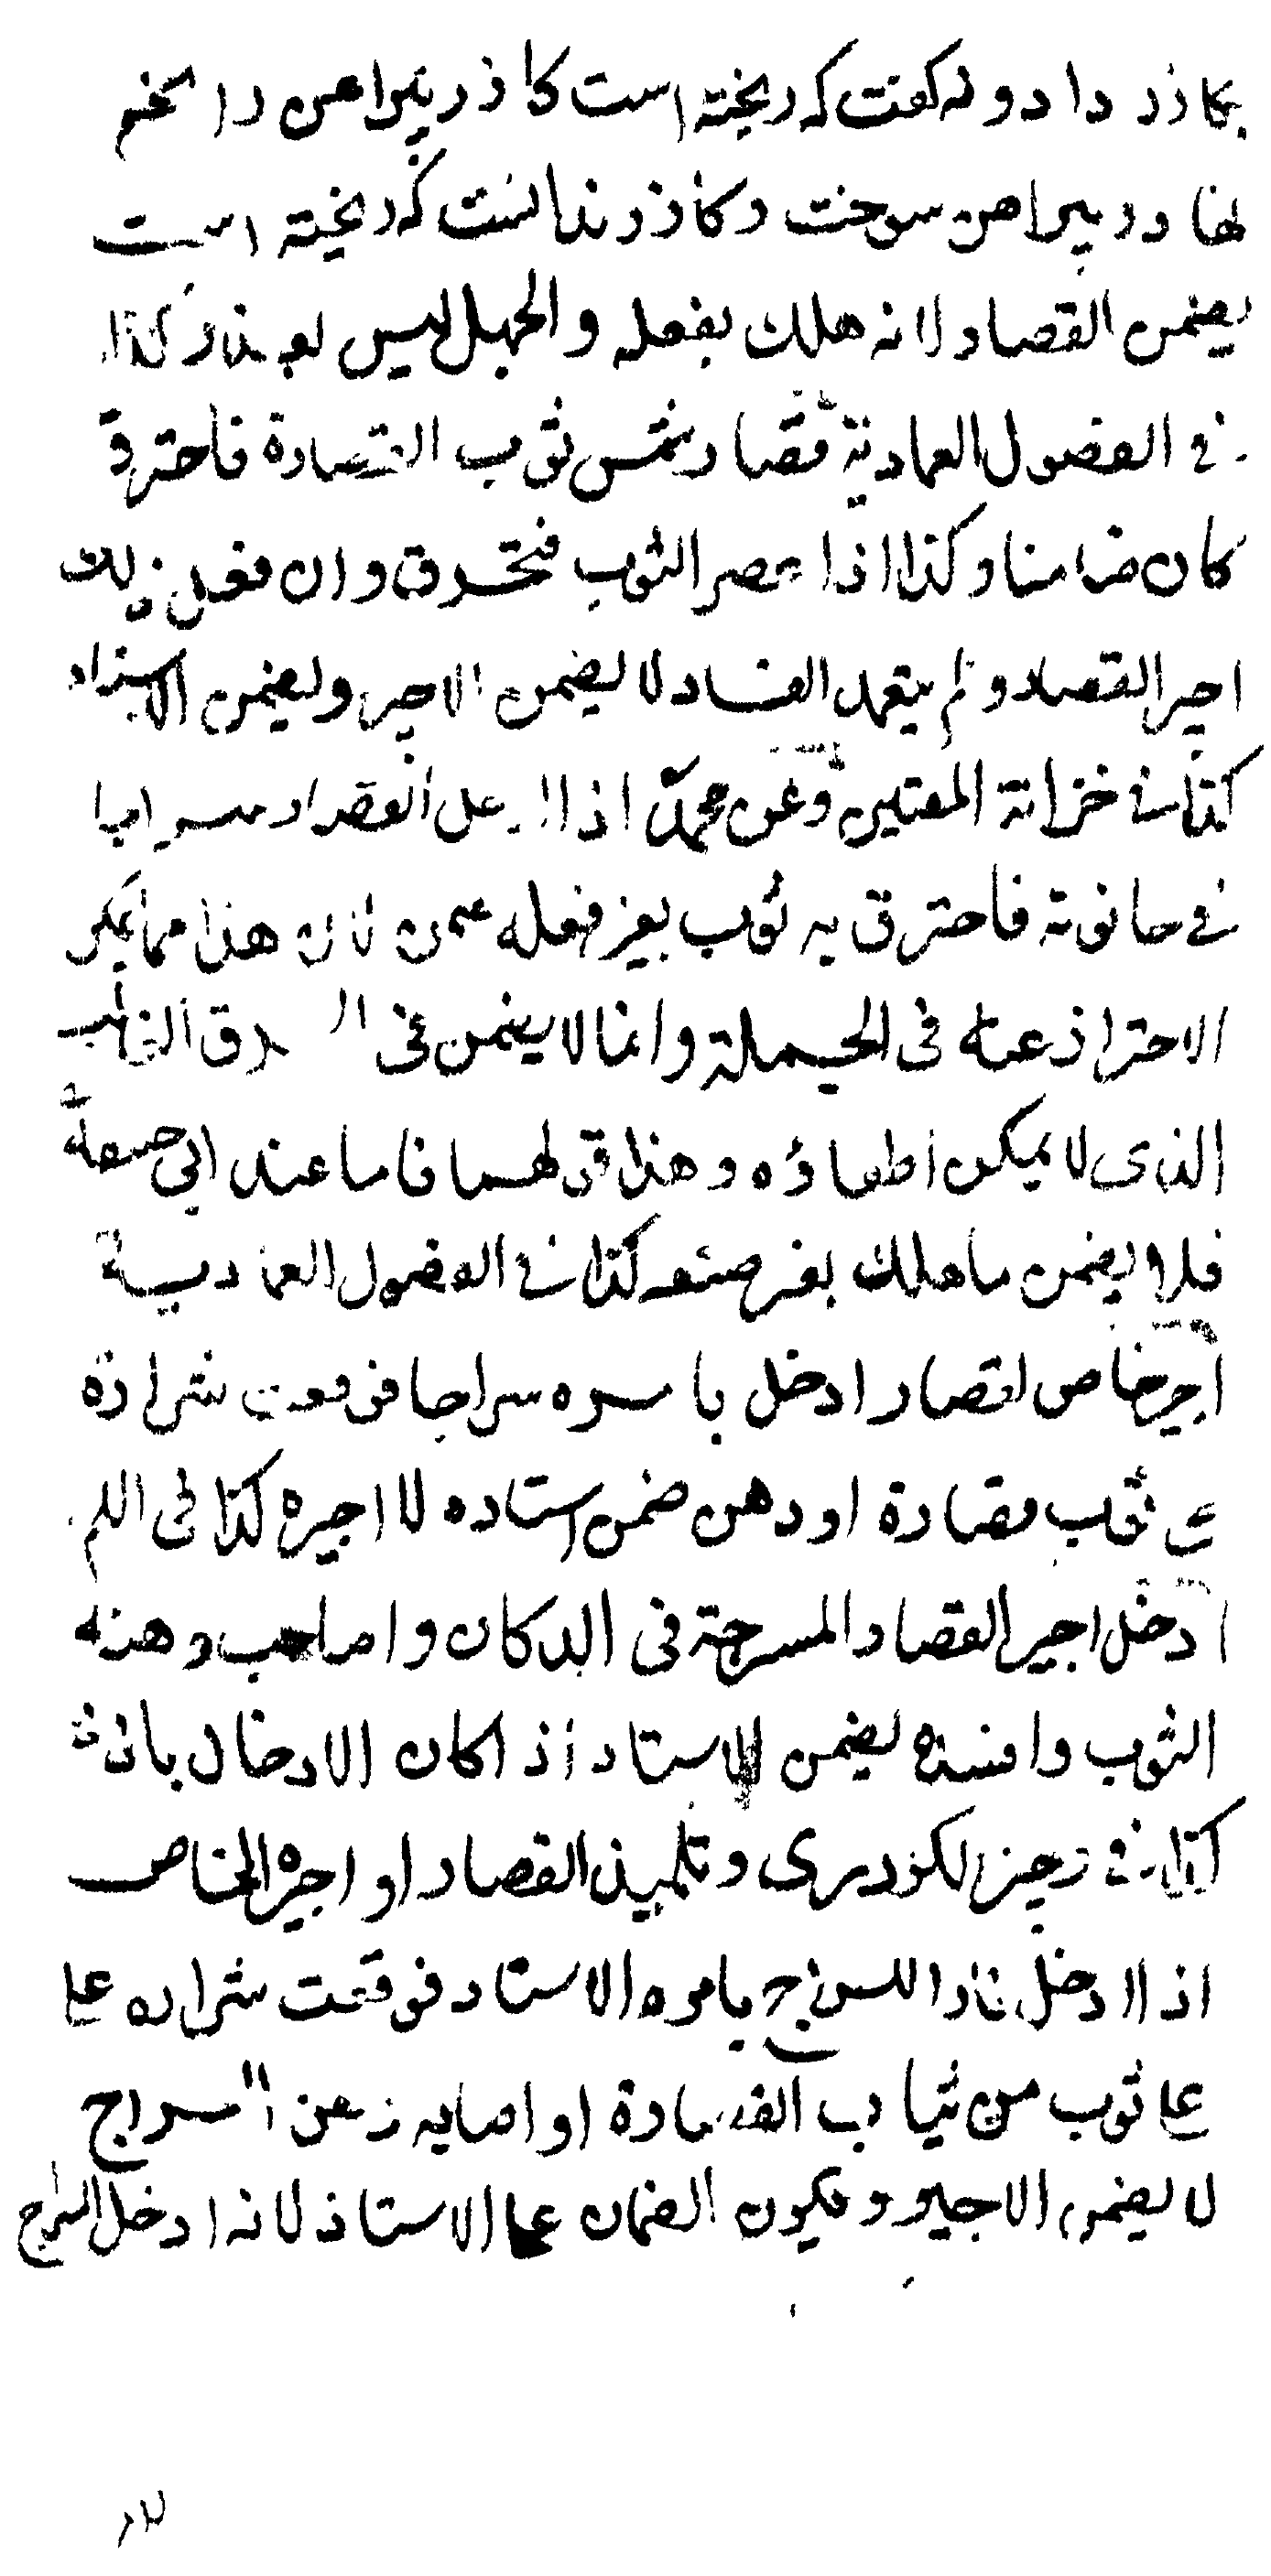 بكازر داد و نه كفت كه ريخته است كازر پيراهن را بخم
نهاد و پيراهن سوخت و كازر ندانست كه ريخته است
يضمن القصار لانه هلك بفعله والجهل ليس بعذر كذا
في الفصول العمادية قصار شمس ثوب القصارة فاحترق
كان ضامنا وكذا اذا عصر الثوب فتخرق وان فعل ذلك
اجير القصار ولم يتعمد الفساد لا يضمن الاجير ويضمن الاستاد
كذا في خزانة المفتين وعن محمد اذا ادخل القصار سراجا
في حانوته فاحترق به ثوب بغير فعله ضمن لان هذا مما يمكن
الاحتراز عنه في الجملة وانما لا يضمن في الحرق الغالب
الذي لا يمكن اطفاؤه وهذا قولهما فاما عند ابي حنيفة
فلا يضمن ما هلك بغير صنعه كذا في الفصول العمادية
اجير خاص لقصار ادخل بامره سراجا فوقعت شرارة
على ثوب قصارة او دهن ضمن استاده لا اجيره كذا في
ادخل اجير القصار المسرجة في الدكان واصاب دهنه
الثوب وافسده يضمن الاستاد اذا كان الادخال باذنه
كذا في وجيز الكردري وتلميذ القصار او اجيره الخاص
اذا ادخل نارا للسراج بامر الاستاد فوقعت شراره على
على ثوب من ثياب القصارة او اصابه دهن السراج
لا يضمن الاجير ويكون الضمان على الاستاذ لانه ادخل السراج